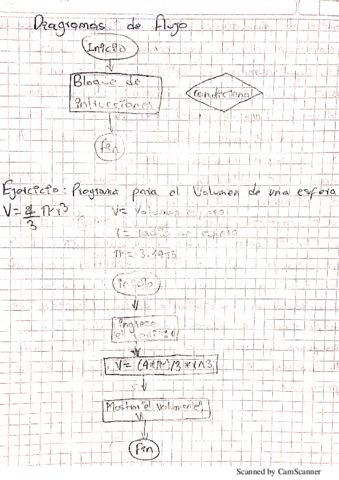 Diagramas de flujo
Inicio
Bloque de
instrucciones
condicional
fin
Ejercicio: Programa para el Volumen de una esfera
V=4/3 πr³
V= Volumen
r=
π= 3.1416
Inicio
Ingrese
el
V= (4*π)/3*r^3
Mostrar "el Volumen es"
V
fin
Scanned by CamScanner